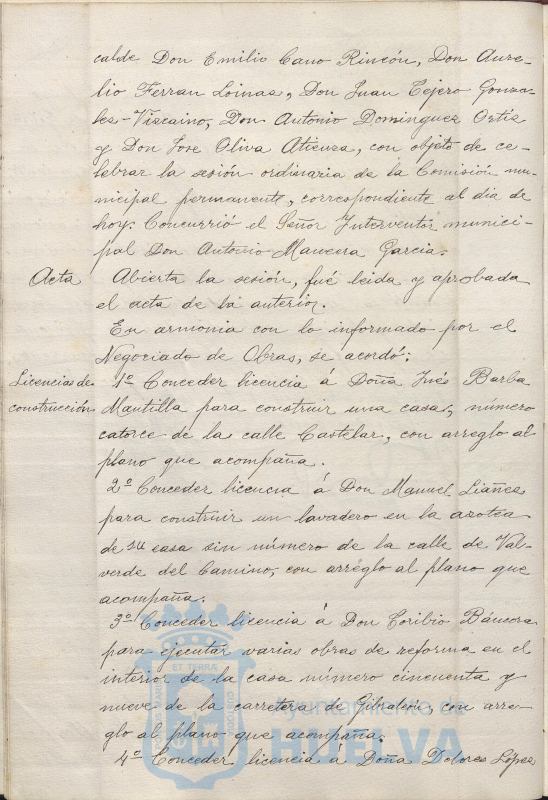 calde Don Emilio Cano Rincón, Don Aure-
lio Ferran Loinas, Don Juan Tejero Gonza-
les-Viscaino, Don Antonio Dominguez Ortiz
y Don Jose Oliva Atienza, con objeto de ce-
lebrar la sesión ordinaria de la Comisión mu-
nicipal permanente, correspondiente al dia de
hoy. Concurrió el Señor Interventor munici-
pal Don Antonio Mancera Garcia.
Acta Abierta la sesión, fué leida y aprobada
el acta de la anterior.
En armonia con lo informado por el
Negociado de Obras, se acordó:
Licencias de 1º Conceder licencia á Doña Inés Barba
construcción Mantilla para construir una casa, número
catorce de la calle Castelar, con arreglo al
plano que acompaña.
2º Conceder licencia á Don Manuel Liañez
para construir un lavadero en la azotea
de su casa sin número de la calle de Val-
verde del Camino, con arreglo al plano que
acompaña.
3º Conceder licencia á Don Toribio Báncora
para ejecutar varias obras de reforma en el
interior de la casa número cincuenta y
nueve de la carretera de Gibraleón, con arre-
glo al plano que acompaña.
4º Conceder licencia á Doña Dolores López
ET TERRÆ
Ayuntamiento de
HUELVA